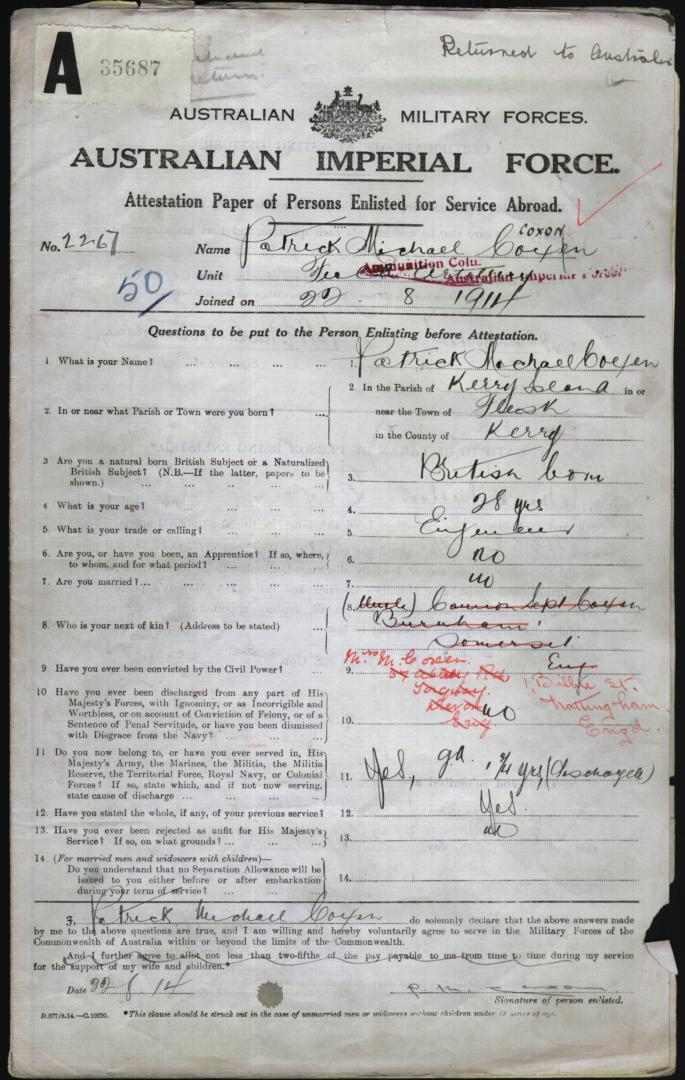 A 35687
Returned to Australia
AUSTRALIAN MILITARY FORCES.
AUSTRALIAN IMPERIAL FORCE.
Attestation Paper of Persons Enlisted for Service Abroad.
COXON
No. 2267 Name Patrick Michael Coxen
Unit Ammunition Colu.
Australian Imperial
50
Joined on 22 . 8 1914
Questions to be put to the Person Enlisting before Attestation.
1. What is your Name? ... ... ... ... 1. Patrick Michael Coxen
2. In or near what Parish or Town were you born? ... 2. In the Parish of Kerry in or
near the Town of
in the County of Kerry
3. Are you a natural born British Subject or a Naturalized
British Subject? (N.B.—If the latter, papers to be
shown.) ... ... ... ... ... 3. British born
4. What is your age? ... ... ... ... 4. 28 yrs
5. What is your trade or calling? ... ... ... 5. Engineer
6. Are you, or have you been, an Apprentice? If so, where,
to whom, and for what period? ... ... ... 6. no
7. Are you married?... ... ... ... ... 7. no
8. Who is your next of kin? (Address to be stated) ... (8. Uncle) Sept Coxen
Burnham
Somerset
Eng
9. Have you ever been convicted by the Civil Power? ... 9.
Mrs M. Coxen.
Abbey Rd
Torquay.
Devon
Eng
1, St.
Engd.
10. Have you ever been discharged from any part of His
Majesty's Forces, with Ignominy, or as Incorrigible and
Worthless, or on account of Conviction of Felony, or of a
Sentence of Penal Servitude, or have you been dismissed
with Disgrace from the Navy? ... ... ... 10. no
11. Do you now belong to, or have you ever served in, His
Majesty's Army, the Marines, the Militia, the Militia
Reserve, the Territorial Force, Royal Navy, or Colonial
Forces? If so, state which, and if not now serving,
state cause of discharge ... ... ... 11. Yes, yrs, (discharged)
12. Have you stated the whole, if any, of your previous service? 12. Yes
13. Have you ever been rejected as unfit for His Majesty's
Service? If so, on what grounds? ... ... 13. no
14. (For married men and widowers with children)—
Do you understand that no Separation Allowance will be
issued to you either before or after embarkation
during your term of service? ... ... ... 14.
I, Patrick Michael Coxen do solemnly declare that the above answers made
by me to the above questions are true, and I am willing and hereby voluntarily agree to serve in the Military Forces of the
Commonwealth of Australia within or beyond the limits of the Commonwealth.
And I further agree to allot not less than two-fifths of the pay payable to me from time to time during my service
for the support of my wife and children.*
Date 22.8.14 P. M. Coxon
Signature of person enlisted.
D.377/8.14.—C.10220. *This clause should be struck out in the case of unmarried men or widowers without children under 18 years of age.